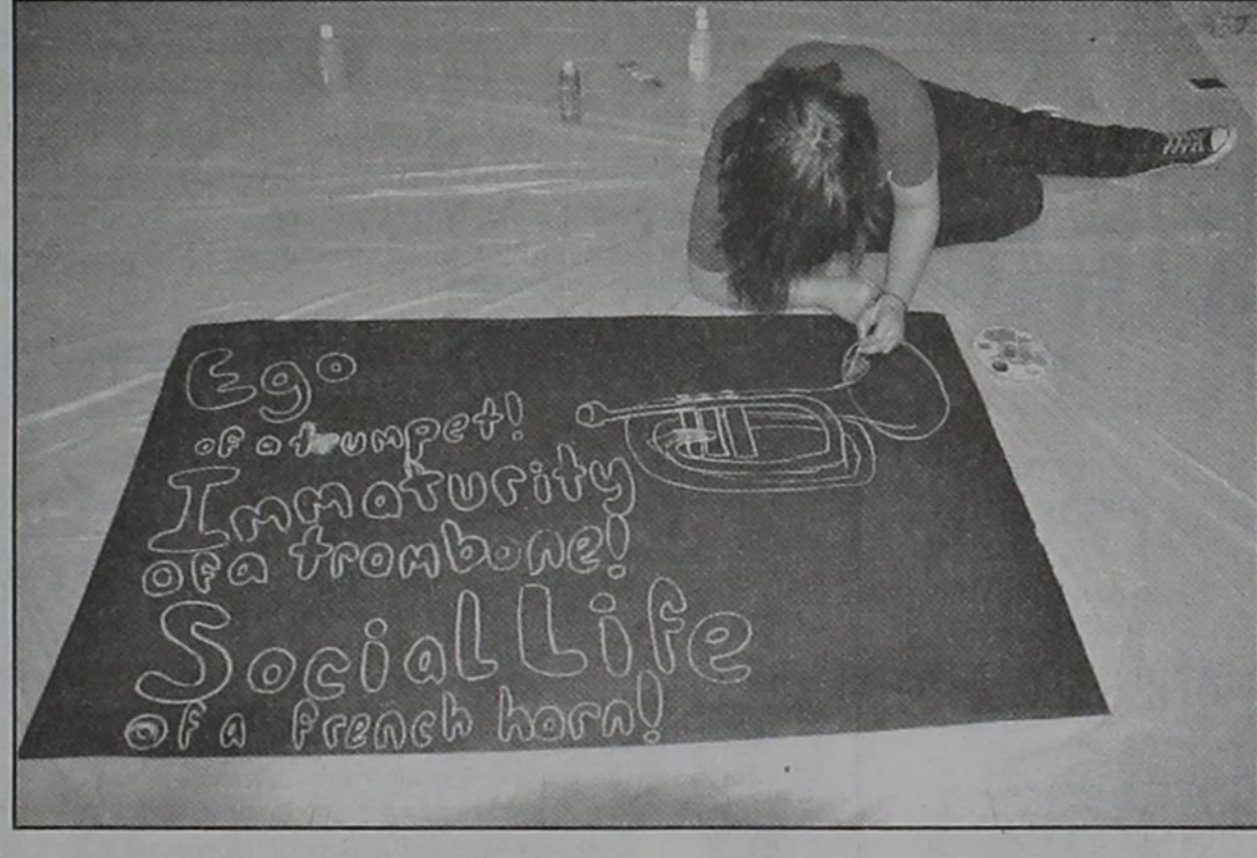 Ego
of a trumpet!
Immaturity
of a trombone!
Social Life
of a french horn!